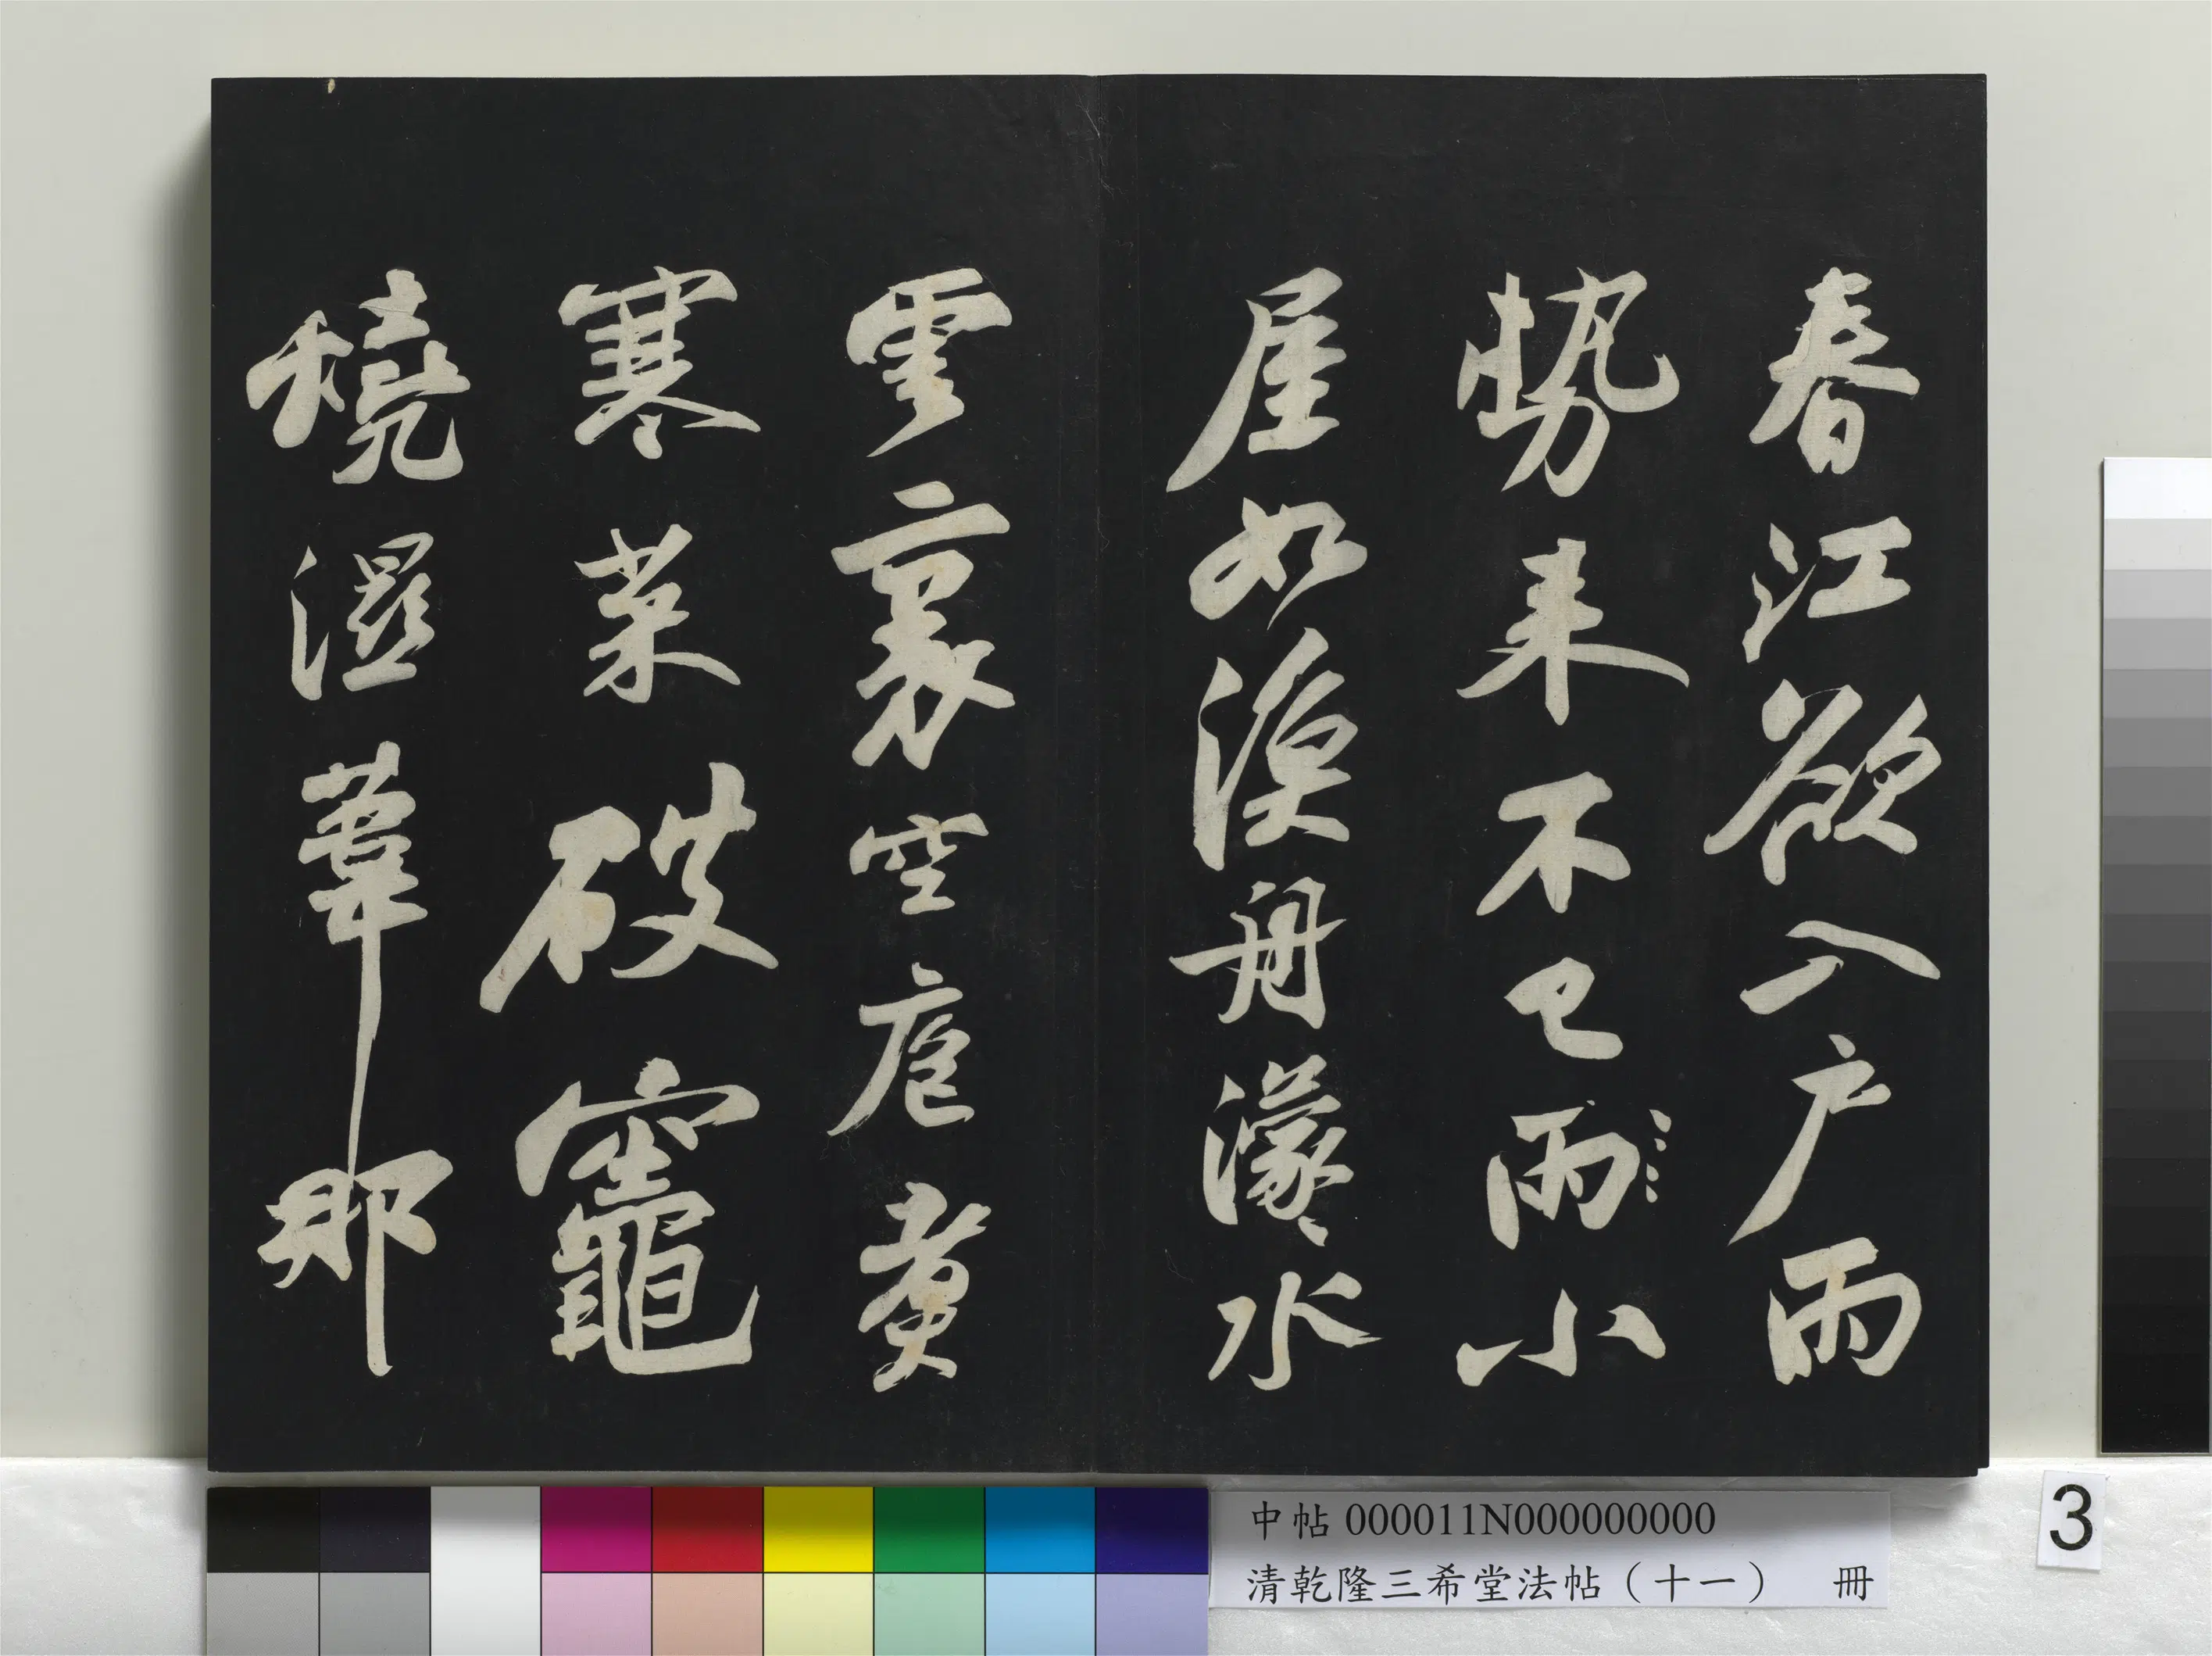 春江欲入户雨
勢来不已雨小
屋如漁舟濛水
雲裏空庖煮
寒菜破竈
燒濕葦那
中帖 000011N000000000
清乾隆三希堂法帖（十一） 冊
3